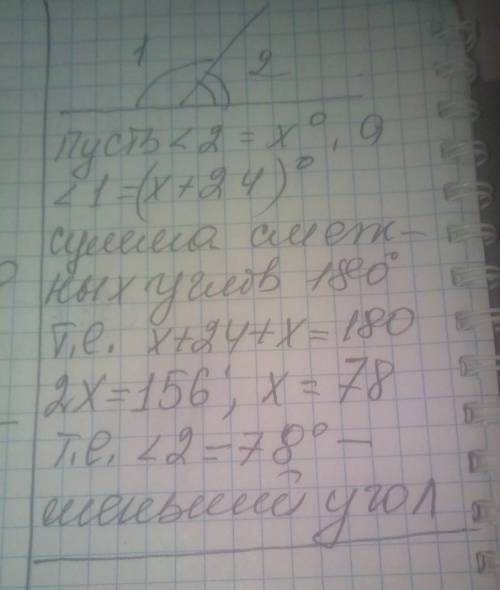 1 2
пусть ∠2 = x°, а
∠1 = (x+24)°
сумма смеж-
ных углов 180°
т.е. x+24+x=180
2x=156; x=78
т.е. ∠2=78° –
меньший угол